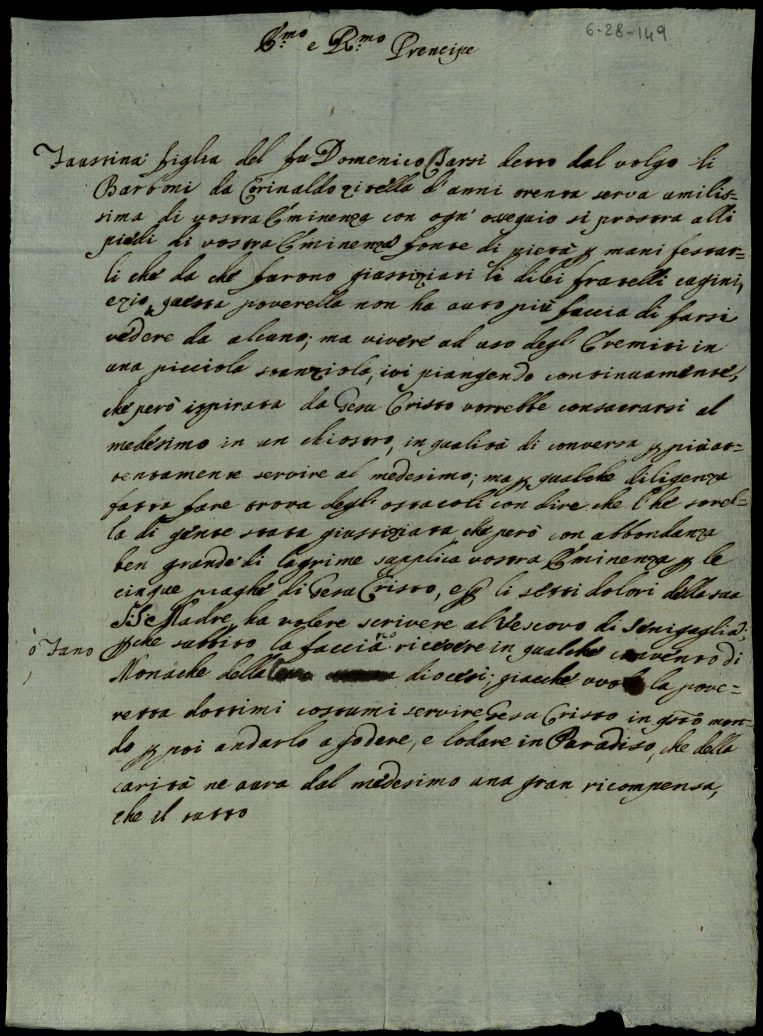 6-28-149
E.mo e R.mo Prencipe
Faustina figlia del fu Domenico Tarsi detto dal volgo li
Barboni da Corinaldo zitella d'anni trenta serva umilis=
sima di vostra Eminenza con ogn' ossequio si prostra alli
piedi di vostra Eminenza fonte di pietà p manifestar=
li che da che furono giustiziati li di lei fratelli cugini,
e zio, questa poverella non ha auto più faccia di farsi
vedere da alcuno; ma vivere ad uso degl' Eremiti in
una picciola stanziola, ivi piangendo continuamente,
che però ispirata da Gesu Cristo vorrebbe consacrarsi al
medesimo in un chiostro, in qualità di conversa p più at=
tentamente servire al medesimo; ma p qualche diligenza
fatta fare trova degl' ostacoli con dire che l'hè sorel=
la di gente stata giustiziata che però con abbondanza
ben grande di lagrime supplica vostra Eminenza p le
cinque piaghe di Gesu Cristo, e p li setti dolori della sua
S.S.e Madre, ha volere scrivere al Vescovo di Senigaglia
ò Fano, p che subbito la facciano ricevere in qualche convento di
Monache della diocesi; giacchè vuole la pove=
retta dottimi costumi servire Gesu Cristo in q.sto mon=
do p poi andarlo a godere, e lodare in Paradiso, che della
carità ne aura dal medesimo una gran ricompensa,
che il tutto